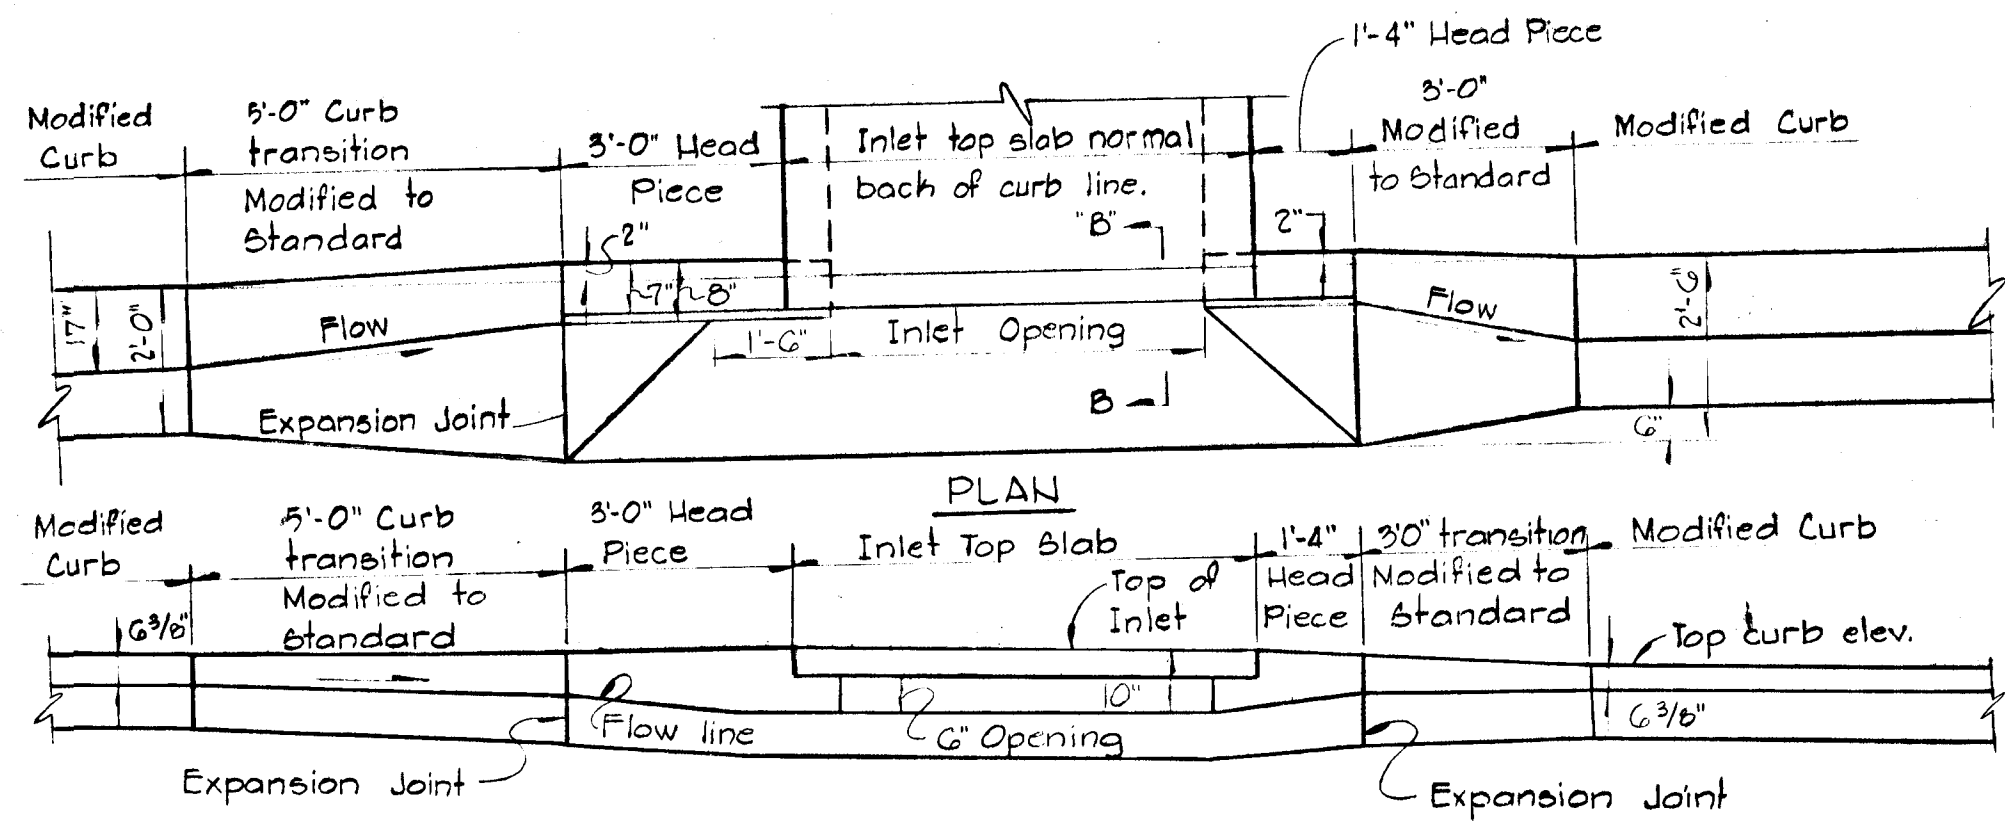 1'-4" Head Piece
Modified
Curb
5'-0" Curb
transition
Modified to
Standard
3'-0" Head
Piece
Inlet top slab normal
back of curb line.
3'-0"
Modified
to Standard
Modified Curb
"B"
2"
2"
7"
8"
17"
2'-0"
Flow
1'-6"
Inlet Opening
Flow
2'-6"
Expansion Joint
B
6"
PLAN
Modified
Curb
5'-0" Curb
transition
Modified to
Standard
3'-0" Head
Piece
Inlet Top Slab
1'-4"
Head
Piece
3'0" transition
Modified to
Standard
Modified Curb
Top of
Inlet
6 3/8"
Top curb elev.
10"
6 3/8"
Flow line
6" Opening
Expansion Joint
Expansion Joint